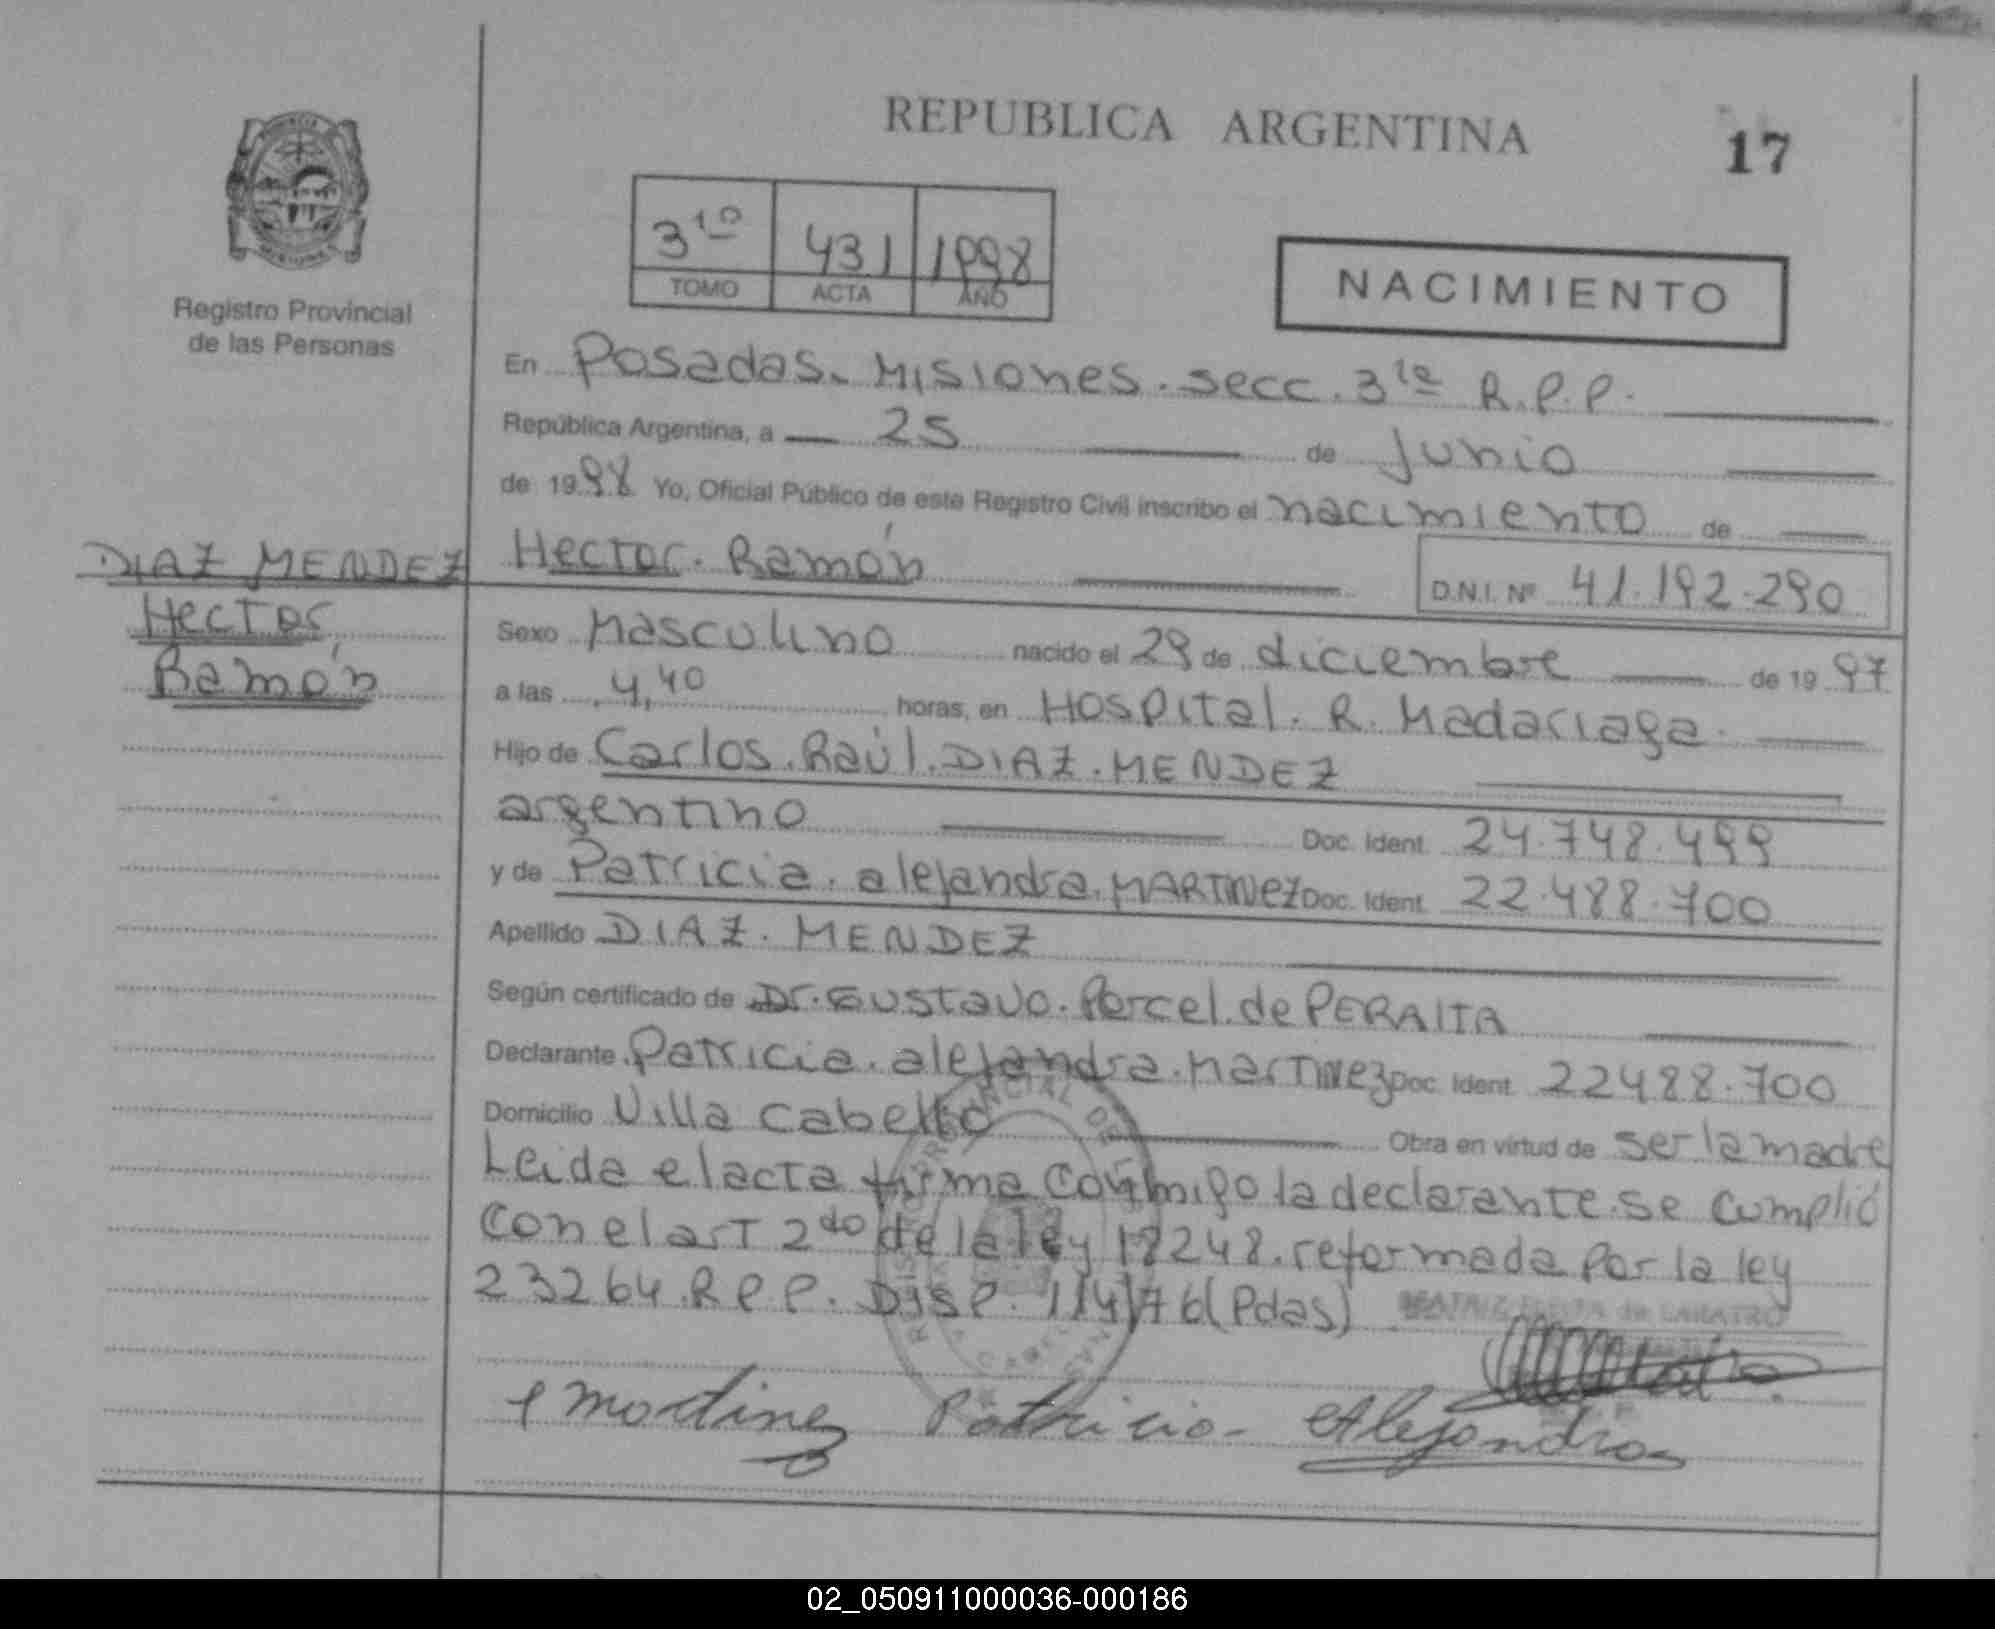 REPUBLICA ARGENTINA
17
3ro 431 1998
TOMO ACTA AÑO
NACIMIENTO
Registro Provincial
de las Personas
En Posadas. Misiones. secc. 3ra R.P.P.
República Argentina, a 25 de Junio
de 1998 Yo, Oficial Público de este Registro Civil inscribo el nacimiento de
DIAZ MENDEZ
Hector
Ramón
Hector. Ramón
D.N.I. Nº 41.192.290
Sexo Masculino nacido el 29 de diciembre de 1997
a las 4,40 horas, en Hospital. R. Madariaga.
Hijo de Carlos. Raúl. DIAZ. MENDEZ
argentino Doc. Ident. 24.748.499
y de Patricia. alejandra. MARTINEZ Doc. Ident. 22.488.700
Apellido DIAZ. MENDEZ
Según certificado de Dr. Gustavo. Porcel. de PERALTA
Declarante Patricia. alejandra. Martinez Doc. Ident. 22488.700
Domicilio Villa Cabello Obra en virtud de ser la madre
Leida el acta firma conmigo la declarante. se cumplió
con el art 2do de la ley 18248. reformada por la ley
23264. R.P.P. Disp. 114/76 (Pdas)
BEATRIZ
Martinez Patricia Alejandra
02_050911000036-000186